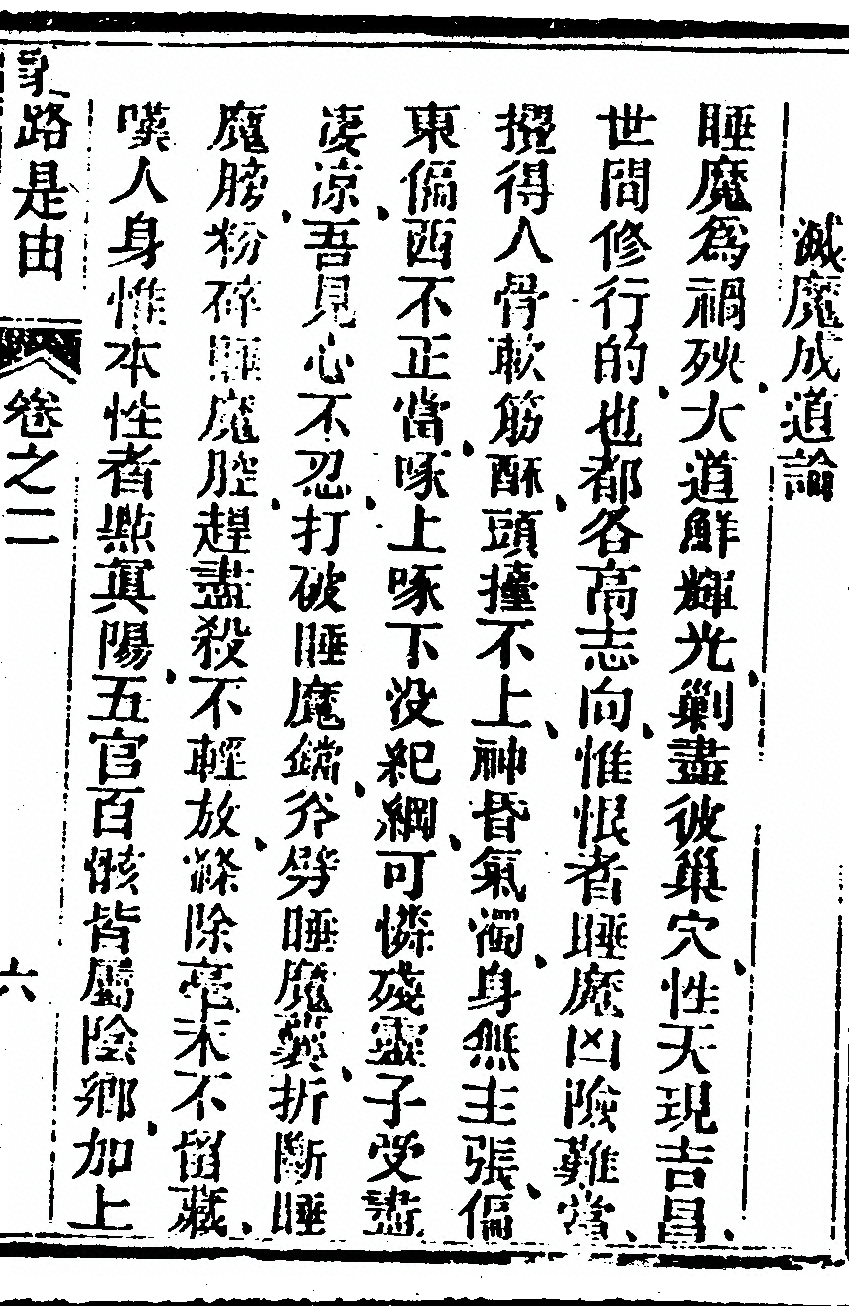 滅魔成道論
睡魔為禍殃大道鮮輝光剿盡彼巢穴性天現吉昌
世間修行的也都各高志向惟恨者睡魔凶險難當
攪得人骨軟筋酥頭擡不上神昏氣濁身無主張偏
東偏西不正當啄上啄下没紀綱可憐殘靈子受盡
凄涼吾見心不忍打破睡魔鐺斧劈睡魔囊折斷睡
魔膀粉碎睡魔腔趕盡殺不輕放滌除毫末不留藏
嘆人身惟本性者點真陽五官百骸皆屬陰鄉加上
路是由
卷之二
六